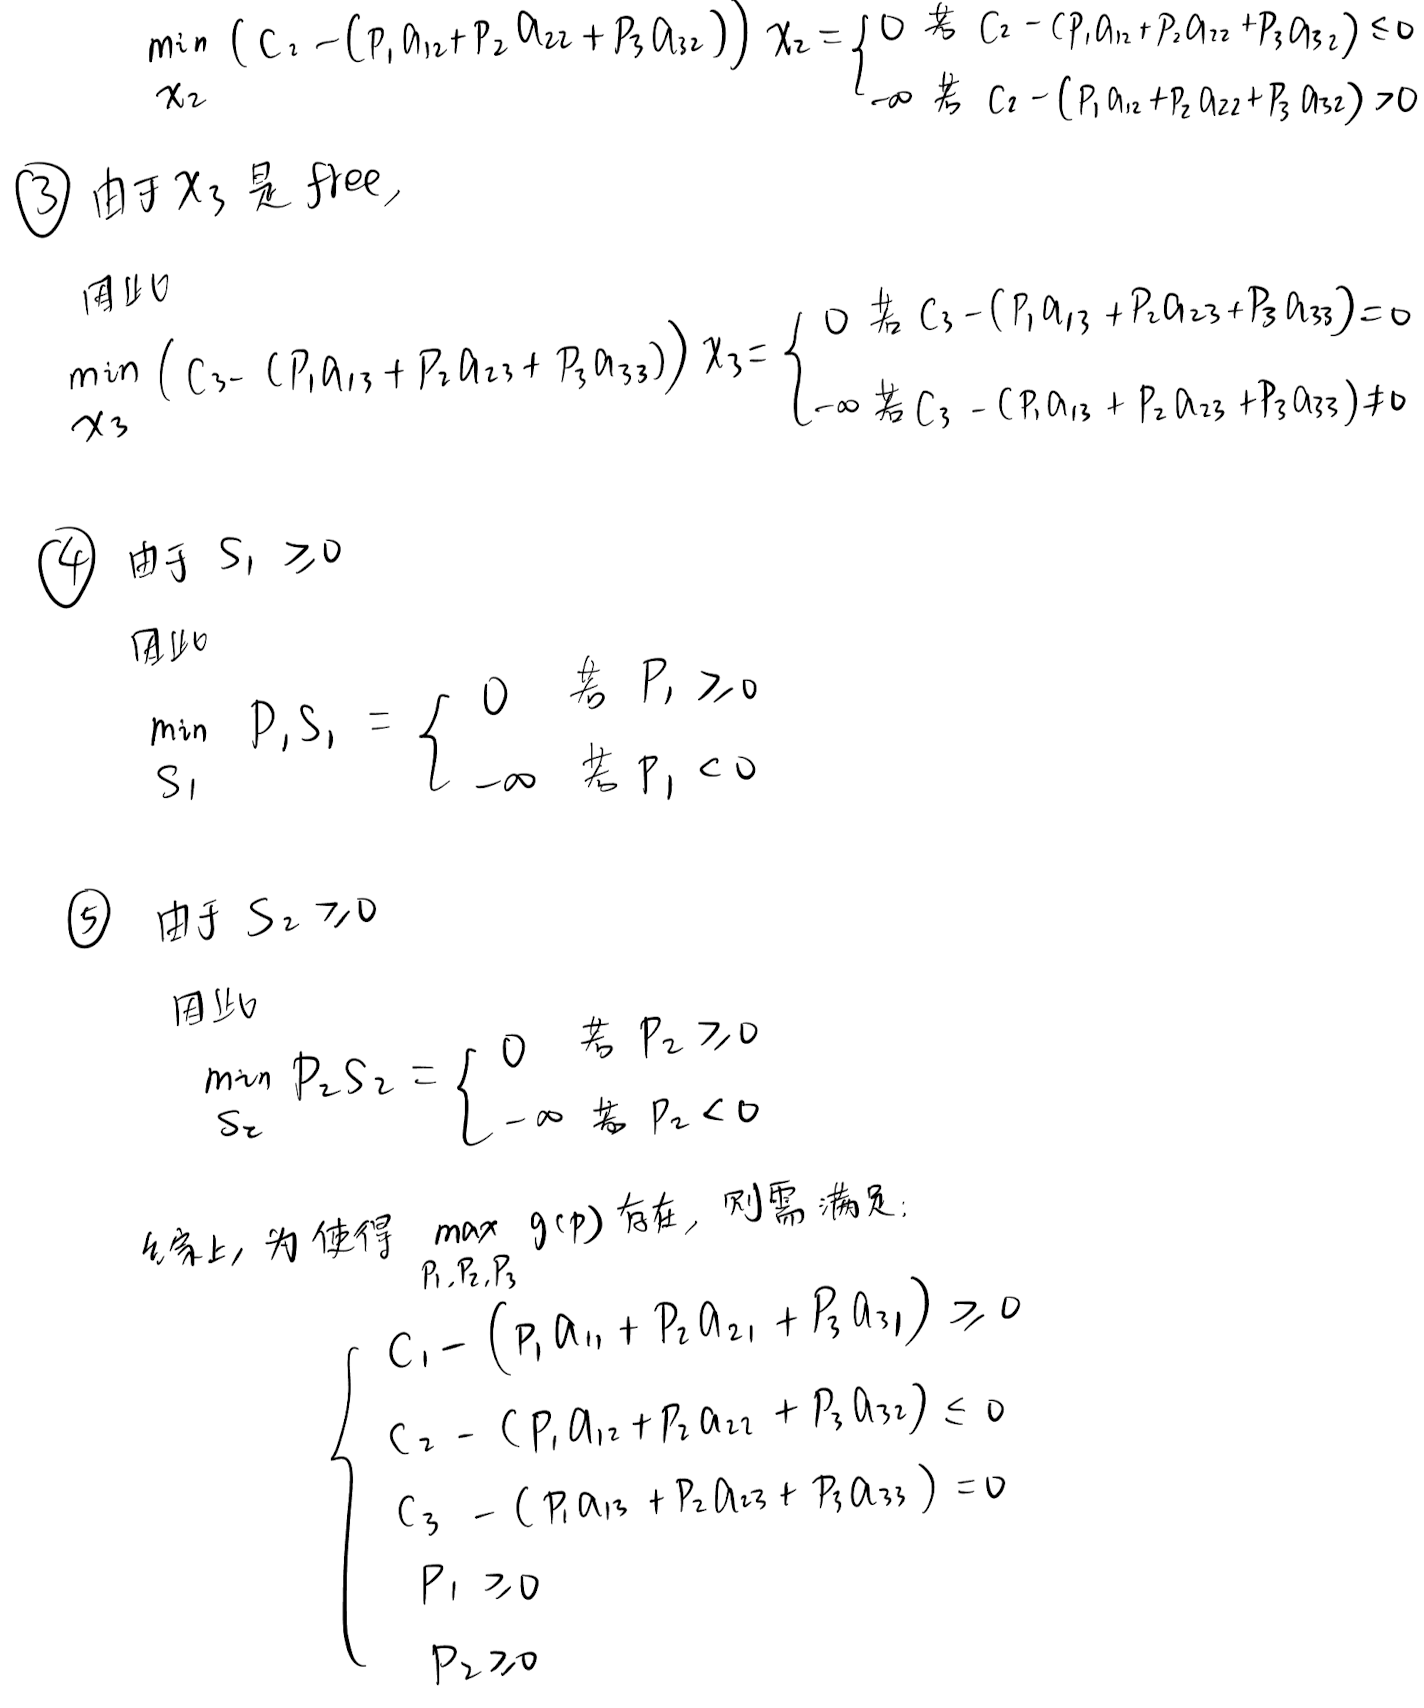 min (C₂ - (P₁a₁₂ + P₂a₂₂ + P₃a₃₂)) x₂ = { 0 若 C₂ - (P₁a₁₂ + P₂a₂₂ + P₃a₃₂) ≤ 0
x₂ -∞ 若 C₂ - (P₁a₁₂ + P₂a₂₂ + P₃a₃₂) > 0
③ 由于 x₃ 是 free,
因此
min (C₃ - (P₁a₁₃ + P₂a₂₃ + P₃a₃₃)) x₃ = { 0 若 C₃ - (P₁a₁₃ + P₂a₂₃ + P₃a₃₃) = 0
x₃ -∞ 若 C₃ - (P₁a₁₃ + P₂a₂₃ + P₃a₃₃) ≠ 0
④ 由于 S₁ ≥ 0
因此
min P₁S₁ = { 0 若 P₁ ≥ 0
S₁ -∞ 若 P₁ < 0
⑤ 由于 S₂ ≥ 0
因此
min P₂S₂ = { 0 若 P₂ ≥ 0
S₂ -∞ 若 P₂ < 0
综上, 为使得 max g(p) 存在, 则需满足:
P₁, P₂, P₃
{ C₁ - (P₁a₁₁ + P₂a₂₁ + P₃a₃₁) ≥ 0
C₂ - (P₁a₁₂ + P₂a₂₂ + P₃a₃₂) ≤ 0
C₃ - (P₁a₁₃ + P₂a₂₃ + P₃a₃₃) = 0
P₁ ≥ 0
P₂ ≥ 0